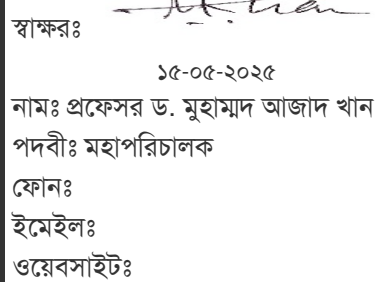 স্বাক্ষরঃ
১৫-০৫-২০২৫
নামঃ প্রফেসর ড. মুহাম্মদ আজাদ খান
পদবীঃ মহাপরিচালক
ফোনঃ
ইমেইলঃ
ওয়েবসাইটঃ